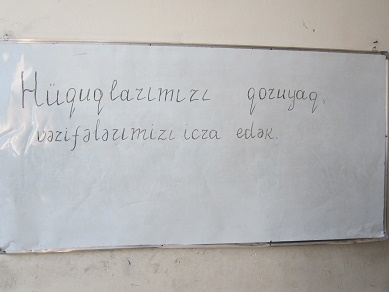 Hüquqlarımızı qoruyaq,
vəzifələrimizi icra edək.